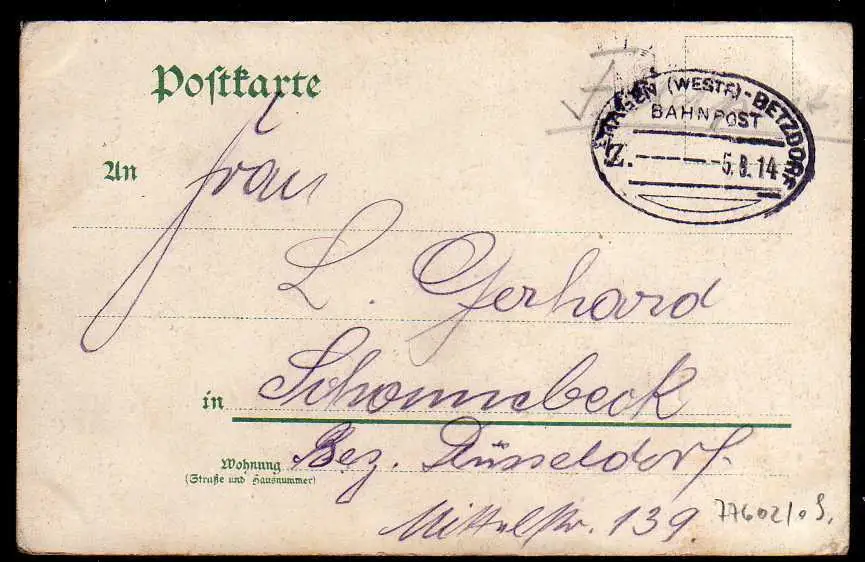 Postkarte
HAGEN (WESTF)-BETZDORF
BAHNPOST
Z. 5.8.14
An Frau
L. Gerhard
in Schonnebeck
Wohnung Bez. Düsseldorf
(Straße und Hausnummer)
Mittelstr. 139.
77602/0S.